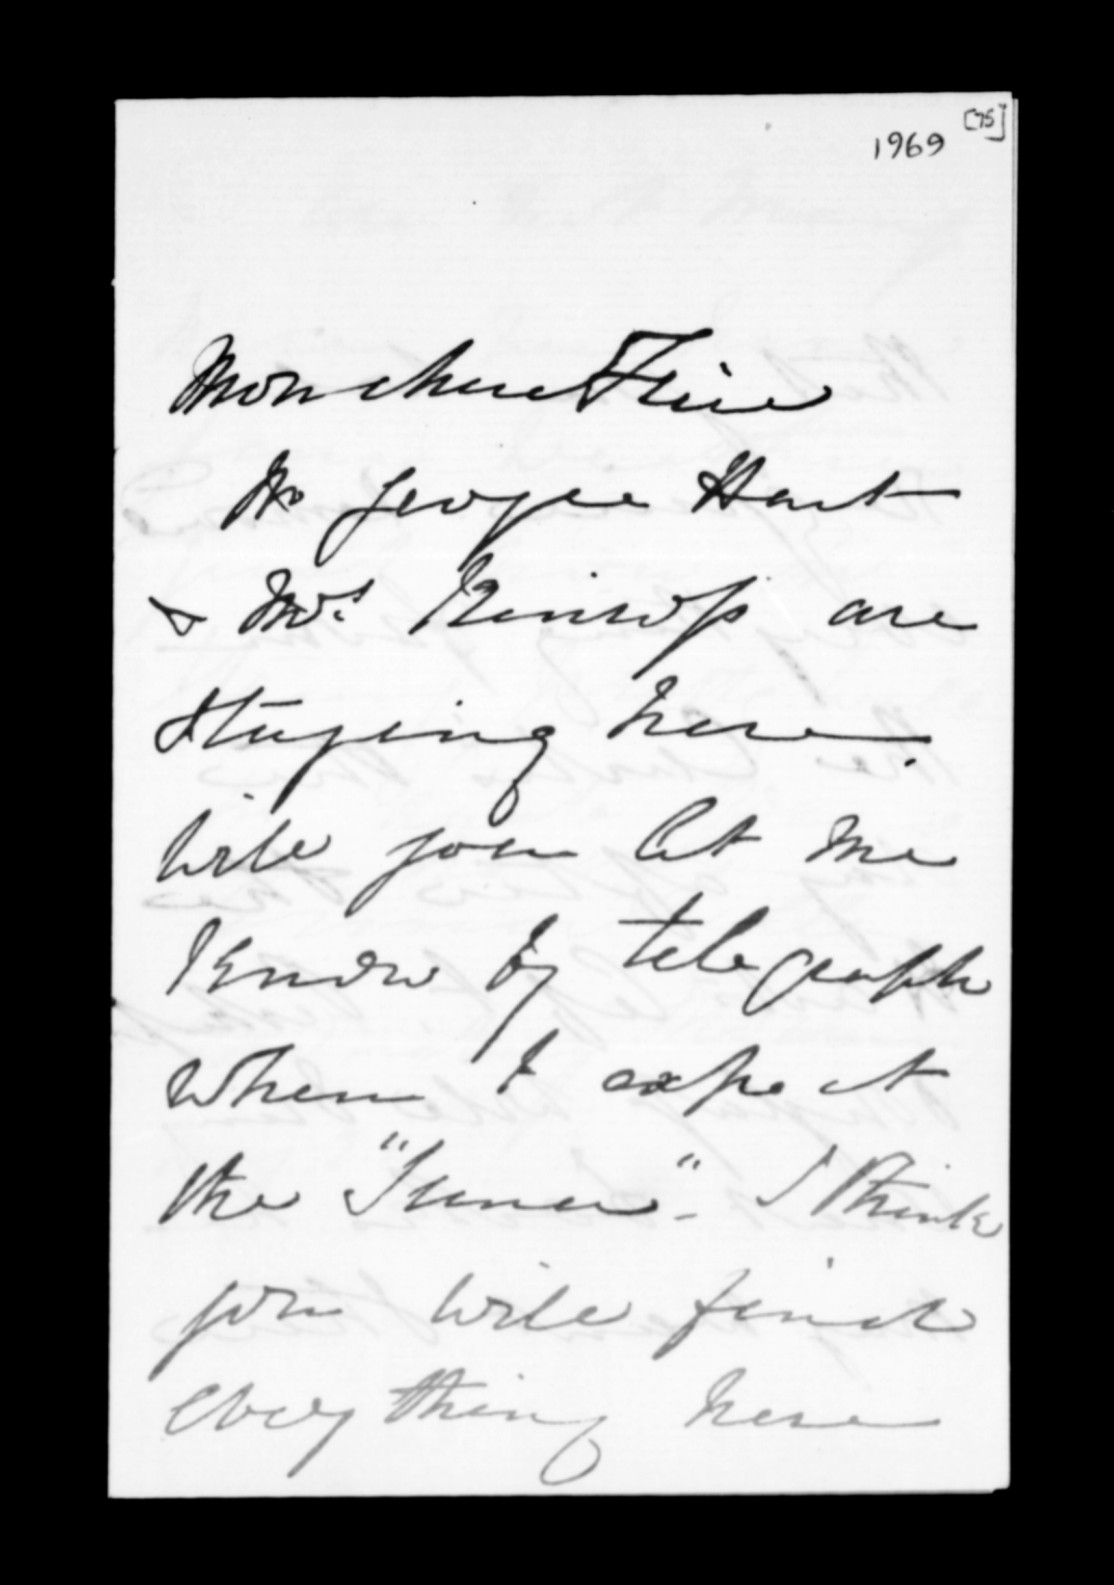 [75]
1969
Mon cher Frère
Mr George Hart
& Mrs are
staying here.
Will you let me
know by telegraph
when to expect
the " ". I think
you will find
everything here